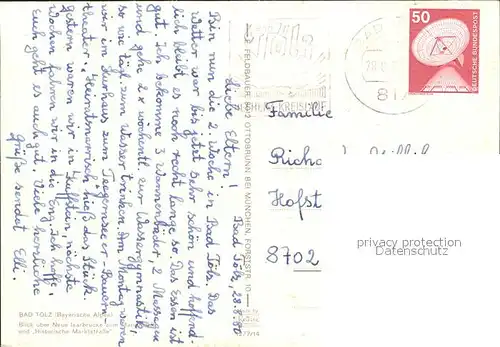 Bad Tölz, 28.8.80
Liebe Eltern!
Bin nun die 2. Woche in Bad Tölz. Das
Wetter war bis jetzt sehr schön und hoffend-
lich bleibt es noch recht lange so. Das Essen ist
gut. Ich bekomme 3 Wannenbäder, 2 Massagen
und gehe 1x wöchentl. zur Wassergymnastik,
so wie tägl. zum Wasser trinken. Am Montag waren
wir im Kurhaus zum Tegernseeer Bauern-
theater. "Heimdnamisch" hieß das Stück.
Gestern waren wir in nächste
Wochen fahren wir in die Eng. Ich hoffe,
Euch geht es auch gut. Viele herzliche
Grüße sendet Elli.
BAD TÖLZ (Bayerische Alpen)
Blick über Neue Isarbrücke zum
und "Historische Marktstraße"
FELDBAUER, 8012 OTTOBRUNN BEI MÜNCHEN, FORSTSTR. 10
50
DEUTSCHE BUNDESPOST
81
Familie
Hofst
8702
privacy protection
Datenschutz